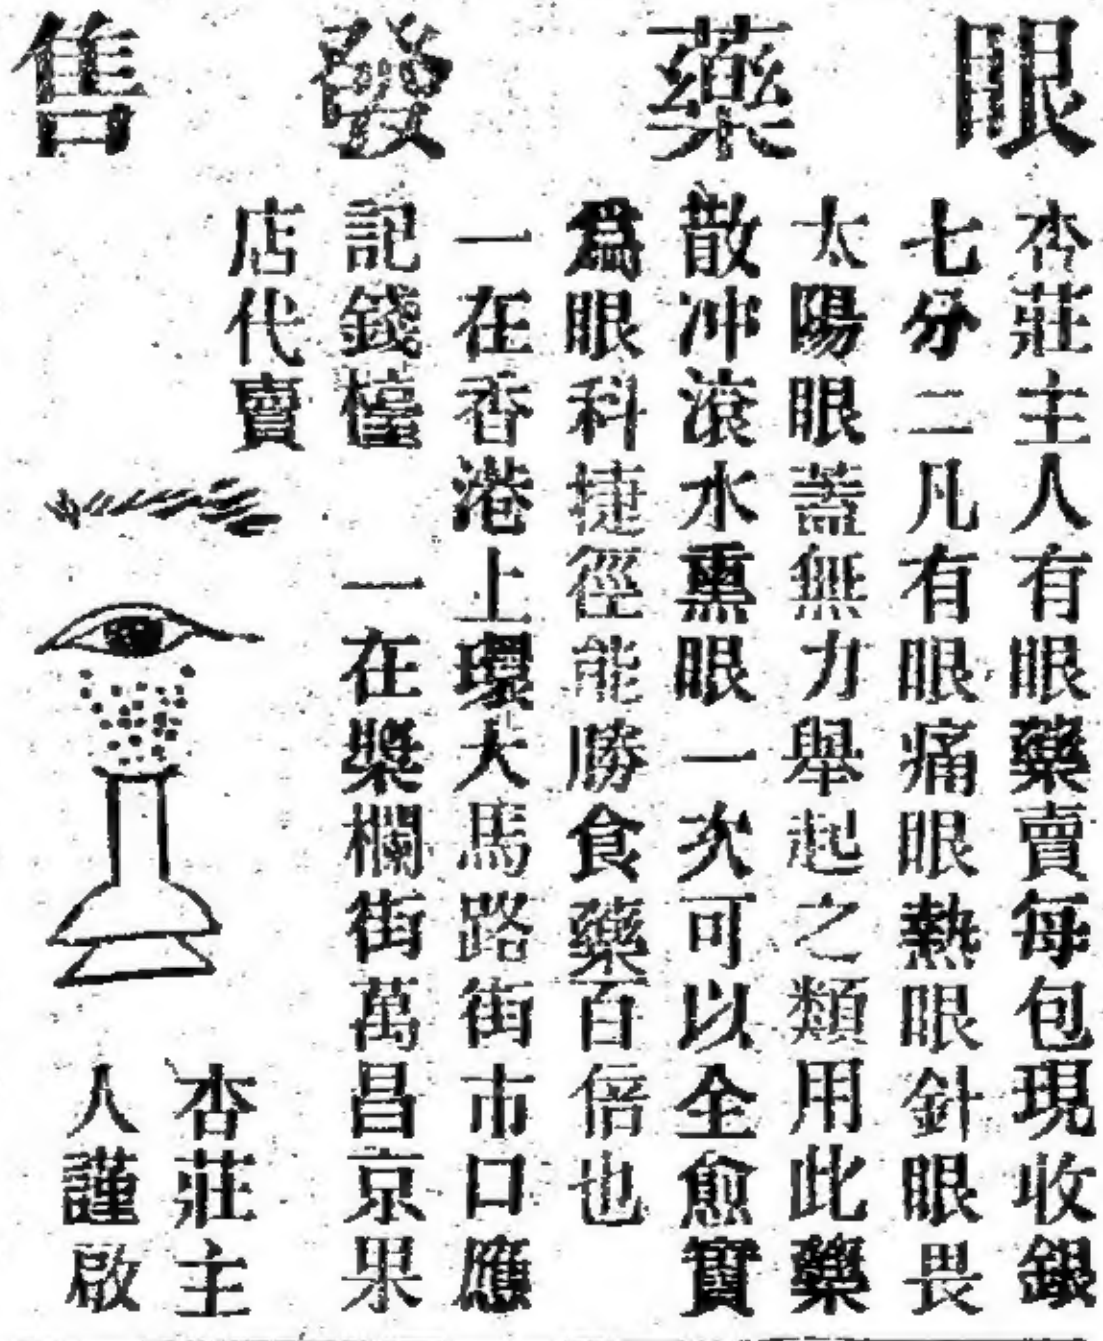 眼藥發售
杏莊主人有眼藥賣每包現收銀
七分二凡有眼痛眼熱眼針眼畏
太陽眼蓋無力舉起之類用此藥
散冲滾水熏眼一次可以全愈實
爲眼科捷徑能勝食藥百倍也
一在香港上環大馬路街市口應
記錢檯 一在槳欄街萬昌京果
店代賣
杏莊主
人謹啟